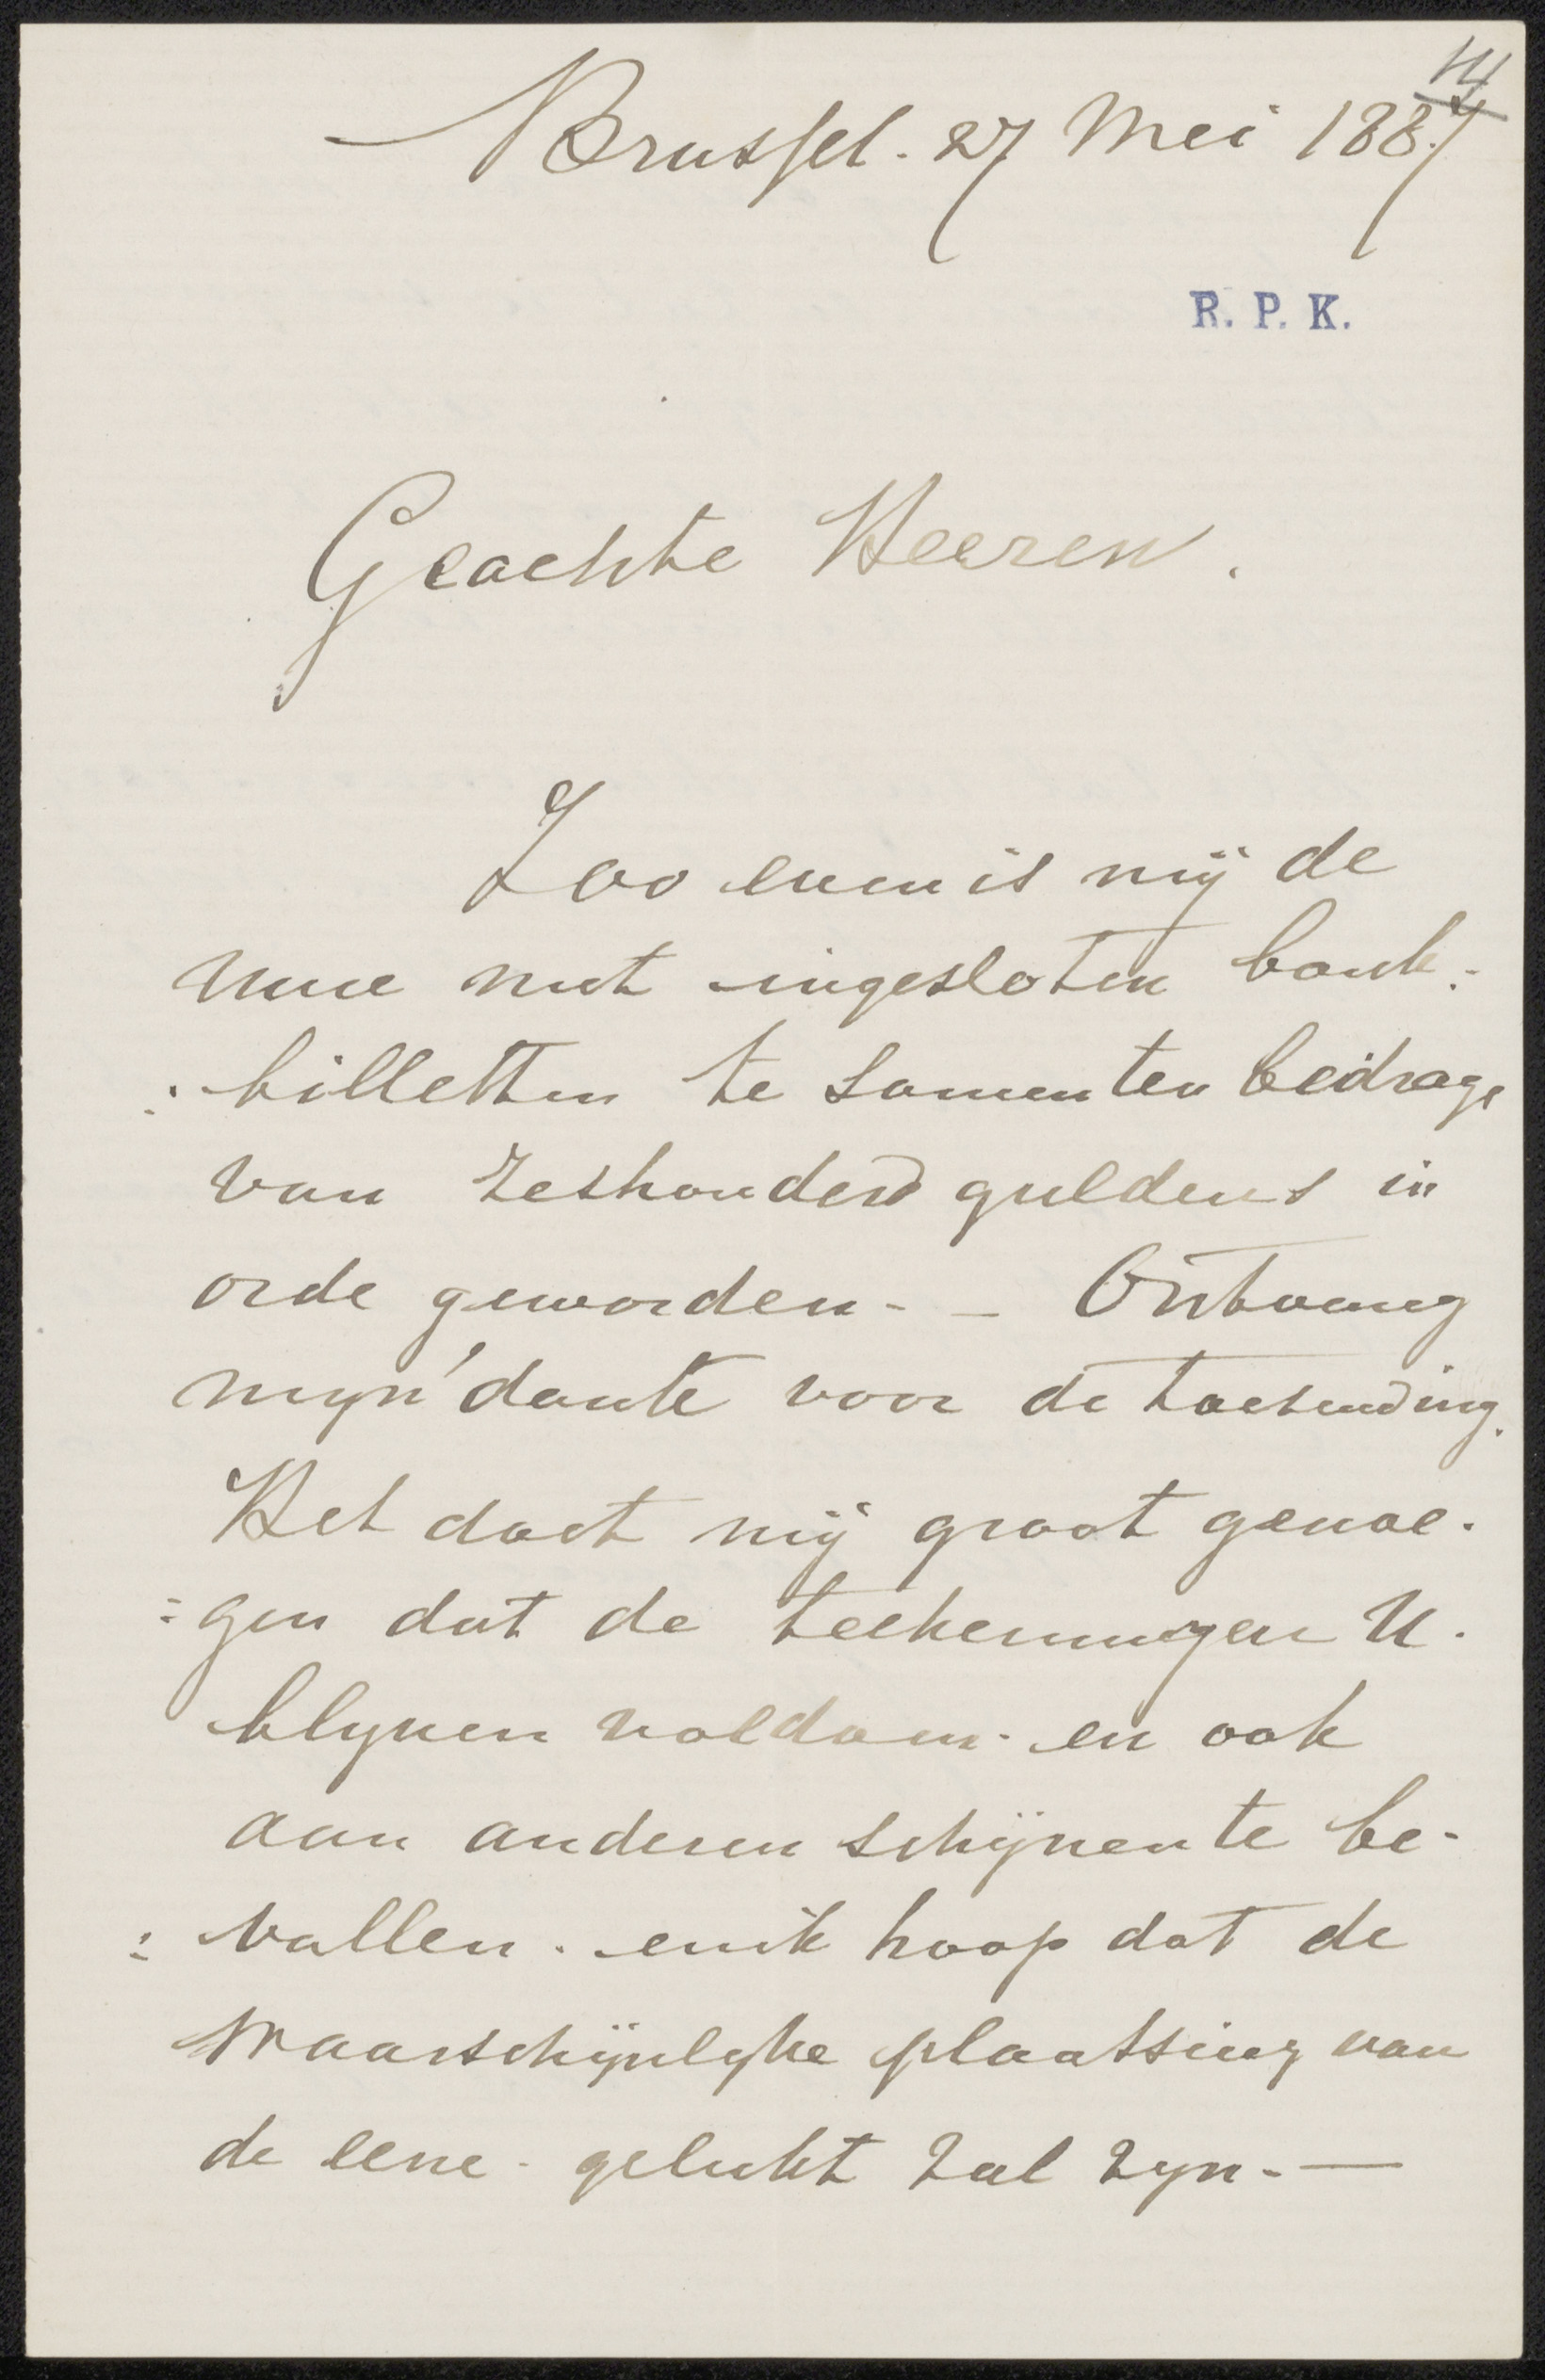 14
Brussel. 27 Mei 1887
R. P. K.
Geachte Heeren.
Zoo even is mij de
uwe met ingesloten bank-
:billetten te samen ten bedrage
van zeshonderd guldens in
orde geworden. — Ontvang
mijn dank voor de toezending.
Het doet mij groot genoe-
:gen dat de teekeningen U.
blyven voldoen. en ook
aan anderen schijnen te be-
:vallen. en ik hoop dat de
waarschijnlyke plaatsing van
de eene. gelukt zal zyn. —